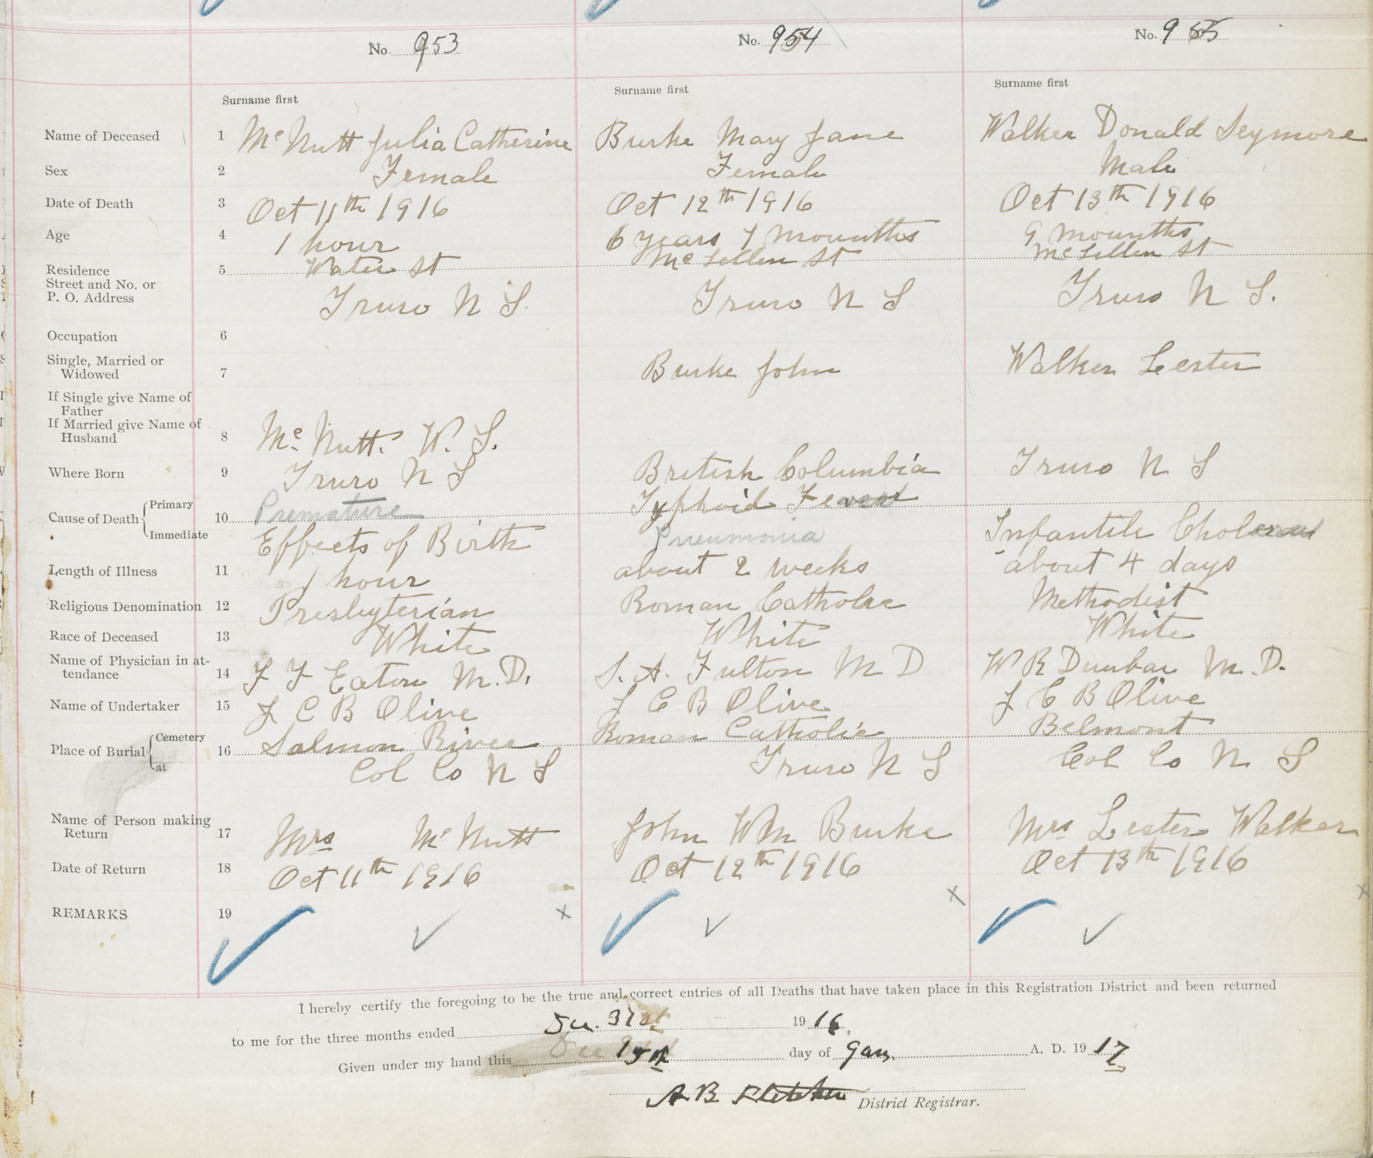 No. 953 No. 954 No. 955
Surname first Surname first Surname first
Name of Deceased 1 McNutt Julia Catherine Burke Mary Jane Walker Donald Seymore
Sex 2 Female Female Male
Date of Death 3 Oct 11th 1916 Oct 12th 1916 Oct 13th 1916
Age 4 1 hour 6 years 7 mounths 9 mounths
Residence 5 Water St McLellen St McLellen St
Street and No. or
P. O. Address Truro N S. Truro N S Truro N S.
Occupation 6
Single, Married or
Widowed 7 Burke John Walker Lester
If Single give Name of
Father
If Married give Name of
Husband 8 Mc Nutt. W. S.
Where Born 9 Truro N S British Columbia Truro N S
Cause of Death Primary 10 Premature Typhoid Fever
Immediate Effects of Birth Pneumonia Infantile Cholera
Length of Illness 11 1 hour about 2 weeks about 4 days
Religious Denomination 12 Presbyterian Roman Catholic Methodist
Race of Deceased 13 White White White
Name of Physician in at-
tendance 14 F F Eaton M.D. S. A. Fulton M D W R Dunbar M.D.
Name of Undertaker 15 J C B Olive J C B Olive J C B Olive
Place of Burial Cemetery 16 Salmon River Roman Catholic Belmont
at Col Co N S Truro N S Col Co N S
Name of Person making
Return 17 Mrs Mc Nutt John Wm Burke Mrs Lester Walker
Date of Return 18 Oct 11th 1916 Oct 12th 1916 Oct 13th 1916
REMARKS 19
I hereby certify the foregoing to be the true and correct entries of all Deaths that have taken place in this Registration District and been returned
to me for the three months ended Dec. 31st 1916.
Given under my hand this 15th day of Jan. A. D. 1917
A B Fletcher District Registrar.